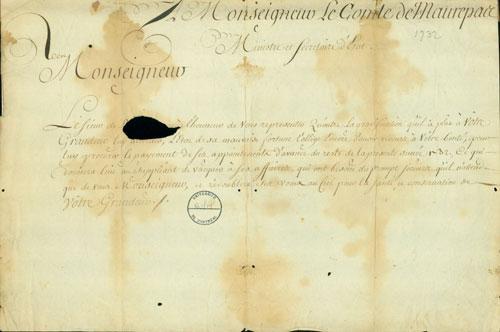 A Monseigneur Le Comte de Maurepas
Ministre et Secretaire d'Etat
1732
Monseigneur
Le Sieur de l'honneur de Vous representer Qu'outre La gratification qu'il a plû à Votre
Grandeur Luy de sa mauvaise fortune L'oblige d'avoir recours à Votre bonté, pour
luy procurer le payement de ses appointements d'avance du reste de la presente année 1732. Ce qui
donnera lieu au Suppliant de vaquer à ses affaires, qui ont besoin du prompt secours qu'il
que de Vous, Monseigneur, et redoublera ses voeux au Ciel pour la Santé et conservation de
Votre Grandeur.